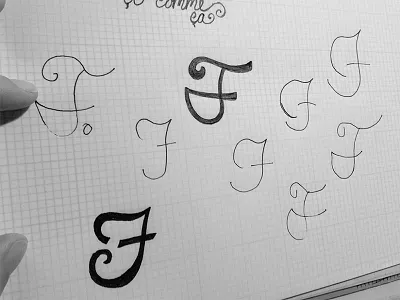 ço comme
ça
F.
F
F
F
F
F
F
F
F